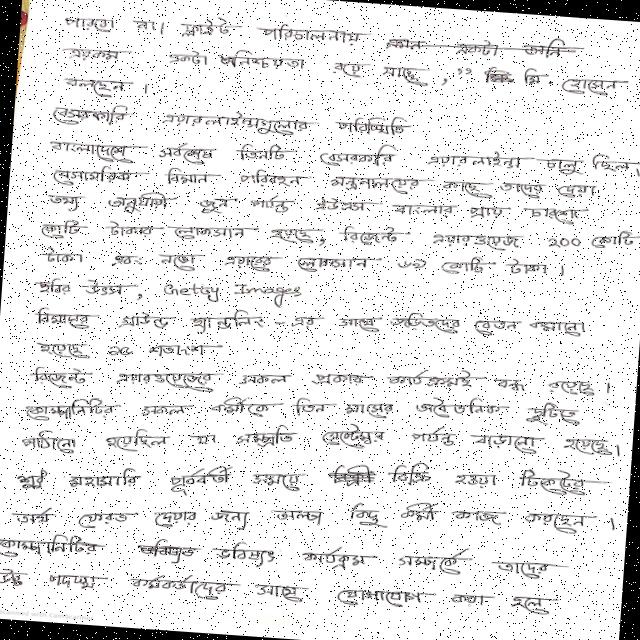 পারবো না। ফ্লাইট পরিচালনায় কোন একটা জানি
এরকম একটা অনিশ্চয়তা রয়ে যাচ্ছে," মি. হোসেন
বলছেন।
বেসরকারি এয়ারলাইন্সগুলোর পরিস্থিতি
বাংলাদেশে সর্বশেষ তিনটি বেসরকারি এয়ারলাইন্স চালু ছিল।
বেসামরিক বিমান পরিবহন মন্ত্রণালয়ের কাছে তাদের দেয়া
তথ্য অনুযায়ী জুন পর্যন্ত ইউএস বাংলার প্রায় চারশো
কোটি টাকার লোকসান হয়েছে, রিজেন্ট এয়ারওয়েজ ২০০ কোটি
টাকা এবং নভো এয়ারের লোকসান ৬৯ কোটি টাকা।
ছবির উৎস, Getty Images
বিমানের গ্রাউন্ড হ্যান্ডলিং-এর সাথে জড়িতদের বেতন কমানো
হয়েছে ২৫ শতাংশ
রিজেন্ট এয়ারওয়েজের সকল প্রকার কার্যক্রমই বন্ধ রয়েছে।
কোম্পানিটির সকল কর্মীকে তিন মাসের অবৈতনিক ছুটিতে
পাঠানো হয়েছিল যা সম্প্রতি সেপ্টেম্বর পর্যন্ত বাড়ানো হয়েছে।
শুধু মহামারি পূর্ববর্তী সময়ে বিক্রি হওয়া টিকেটের
অর্থ ফেরত দেয়ার জন্য অল্প কিছু কর্মী কাজ করছেন।
কোম্পানিটির ভবিষ্যত কার্যক্রম সম্পর্কে তাদের
উচ্চ পদস্থ কর্মকর্তাদের সাথে যোগাযোগ করা হলে